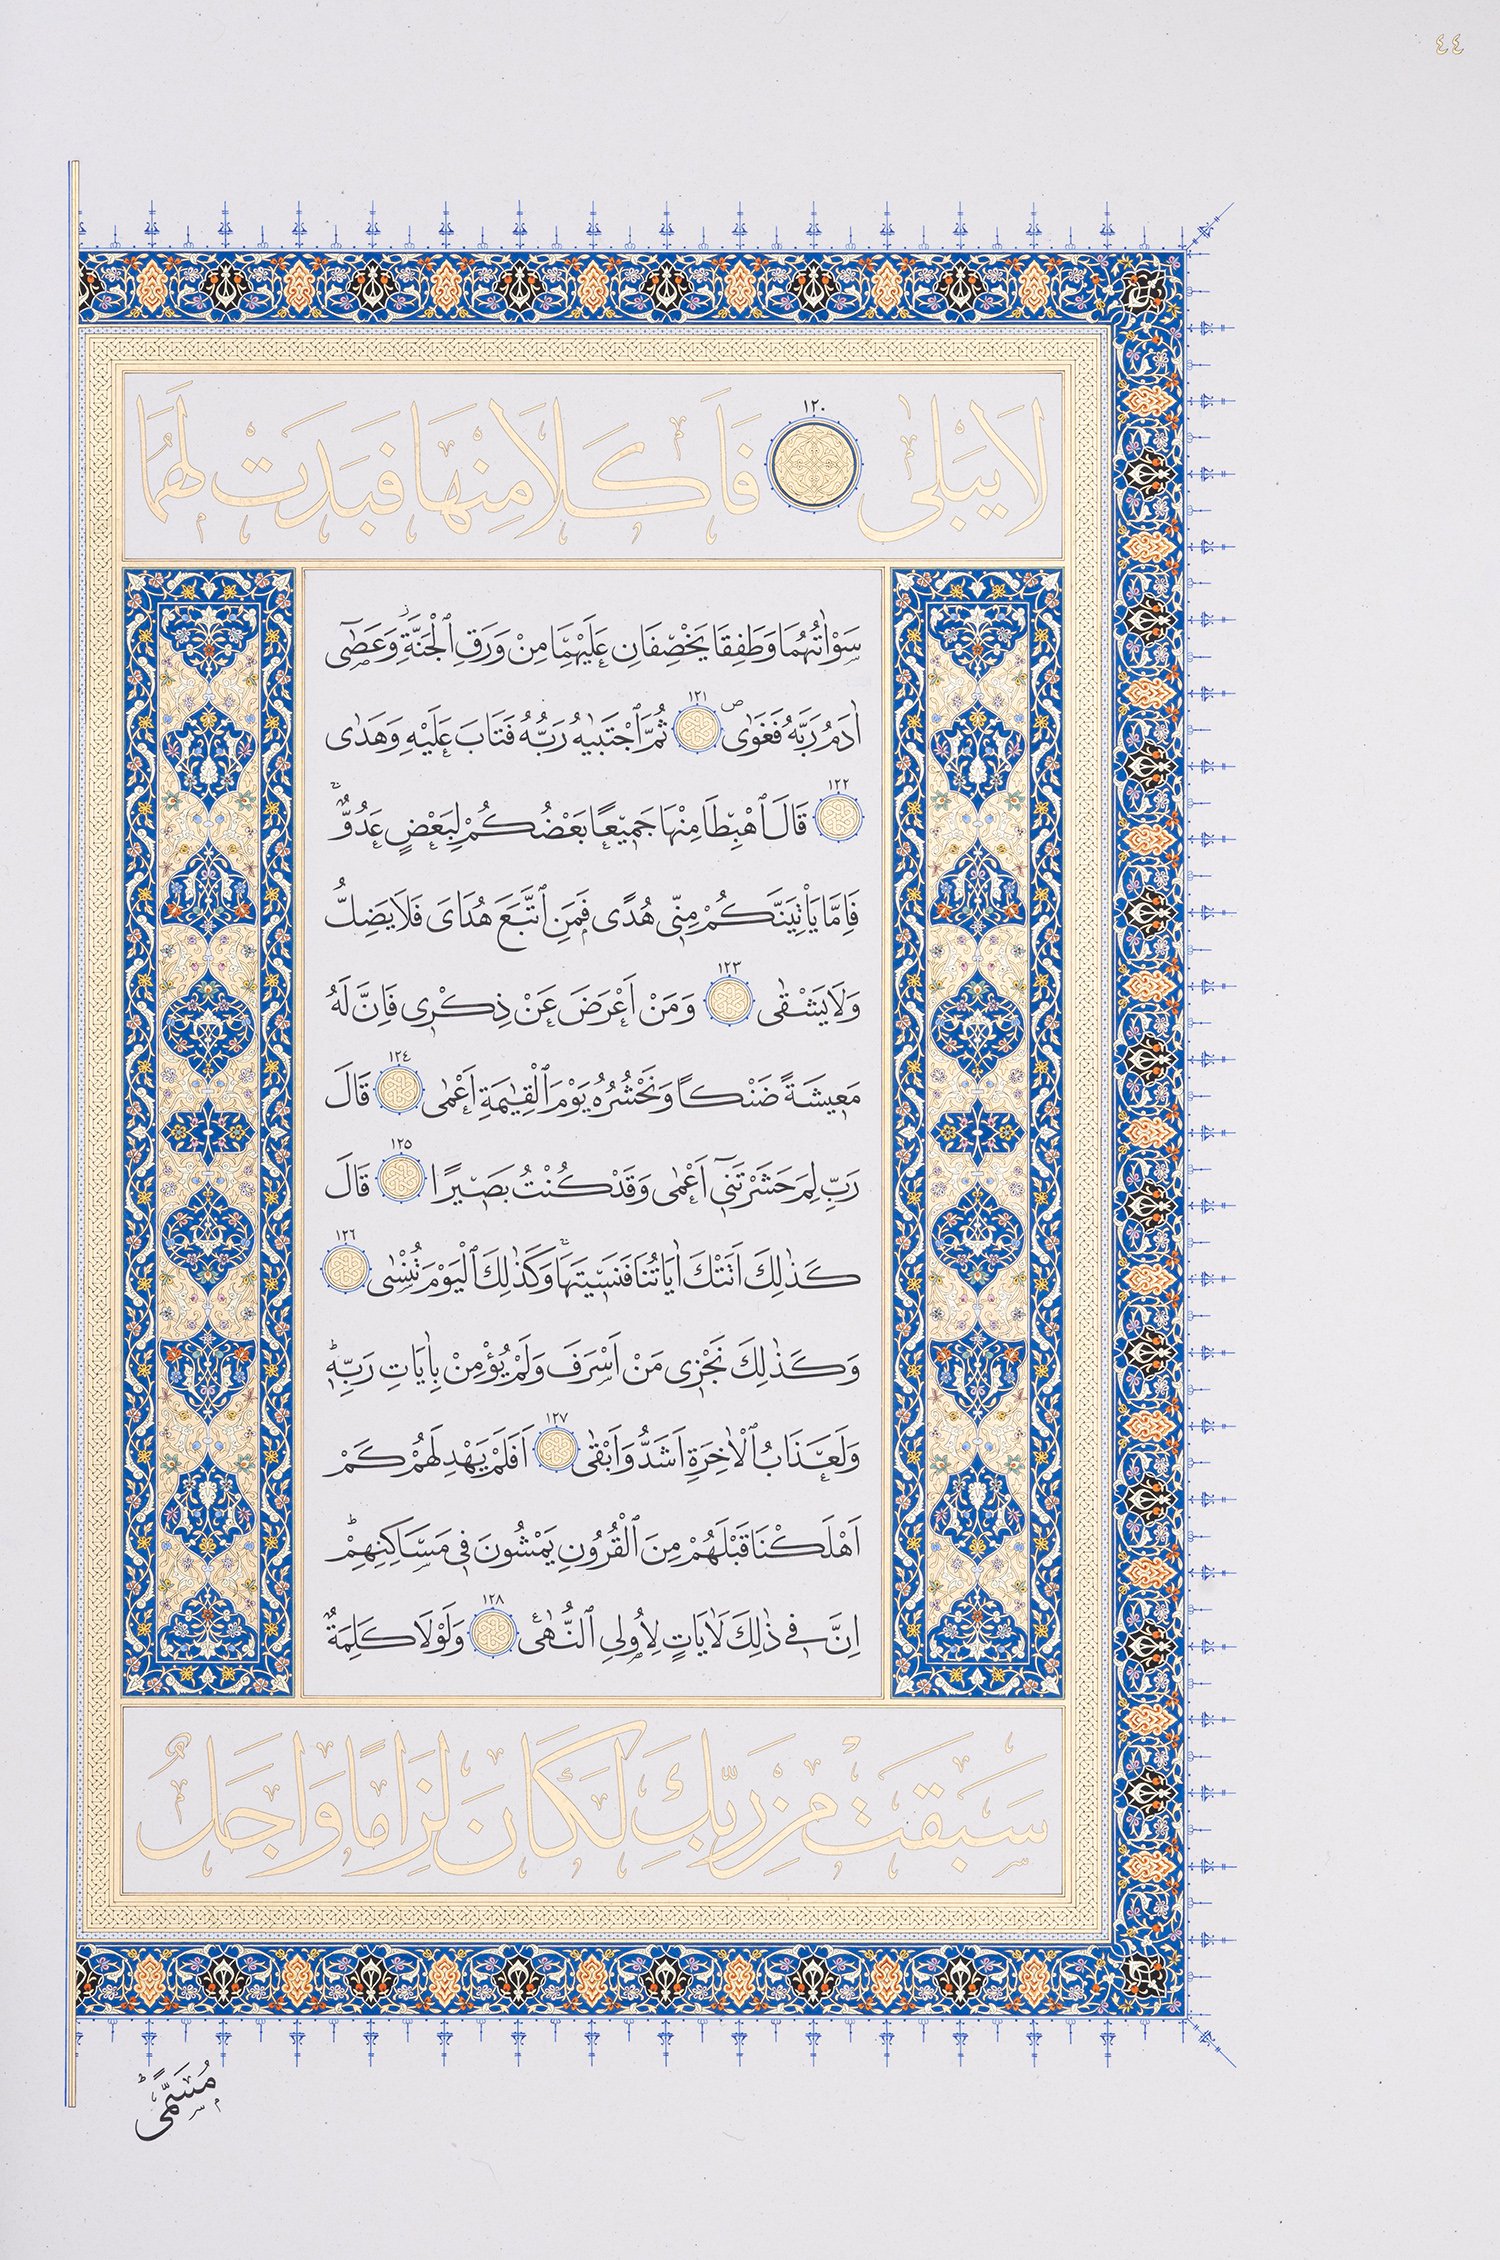 ٤٤
لَا يَبْلٰى ١٢٠ فَاَكَلَا مِنْهَا فَبَدَتْ لَهُمَا
سَوْاٰتُهُمَا وَطَفِقَا يَخْصِفَانِ عَلَيْهِمَا مِنْ وَرَقِ الْجَنَّةِۘ وَعَصٰٓى
اٰدَمُ رَبَّهُ فَغَوٰىۖ ١٢١ ثُمَّ اجْتَبٰيهُ رَبُّهُ فَتَابَ عَلَيْهِ وَهَدٰى
١٢٢ قَالَ اهْبِطَا مِنْهَا جَمِيعًا بَعْضُكُمْ لِبَعْضٍ عَدُوٌّۚ
فَاِمَّا يَاْتِيَنَّكُمْ مِنّ۪ى هُدًى فَمَنِ اتَّبَعَ هُدَاىَ فَلَا يَضِلُّ
وَلَا يَشْقٰى ١٢٣ وَمَنْ اَعْرَضَ عَنْ ذِكْر۪ى فَاِنَّ لَهُ
مَع۪يشَةً ضَنْكًا وَنَحْشُرُهُ يَوْمَ الْقِيٰمَةِ اَعْمٰى ١٢٤ قَالَ
رَبِّ لِمَ حَشَرْتَن۪ٓى اَعْمٰى وَقَدْ كُنْتُ بَص۪يرًا ١٢٥ قَالَ
كَذٰلِكَ اَتَتْكَ اٰيَاتُنَا فَنَس۪يتَهَاۚ وَكَذٰلِكَ الْيَوْمَ تُنْسٰى ١٢٦
وَكَذٰلِكَ نَجْز۪ى مَنْ اَسْرَفَ وَلَمْ يُؤْمِنْ بِاٰيَاتِ رَبِّه۪ۜ
وَلَعَذَابُ الْاٰخِرَةِ اَشَدُّ وَاَبْقٰى ١٢٧ اَفَلَمْ يَهْدِ لَهُمْ كَمْ
اَهْلَكْنَا قَبْلَهُمْ مِنَ الْقُرُونِ يَمْشُونَ ف۪ى مَسَاكِنِهِمْۜ
اِنَّ ف۪ى ذٰلِكَ لَاٰيَاتٍ لِاُو۬لِى النُّهٰى ١٢٨ وَلَوْلَا كَلِمَةٌ
سَبَقَتْ مِنْ رَبِّكَ لَكَانَ لِزَامًا وَاَجَلٌ
مُسَمًّىۜ